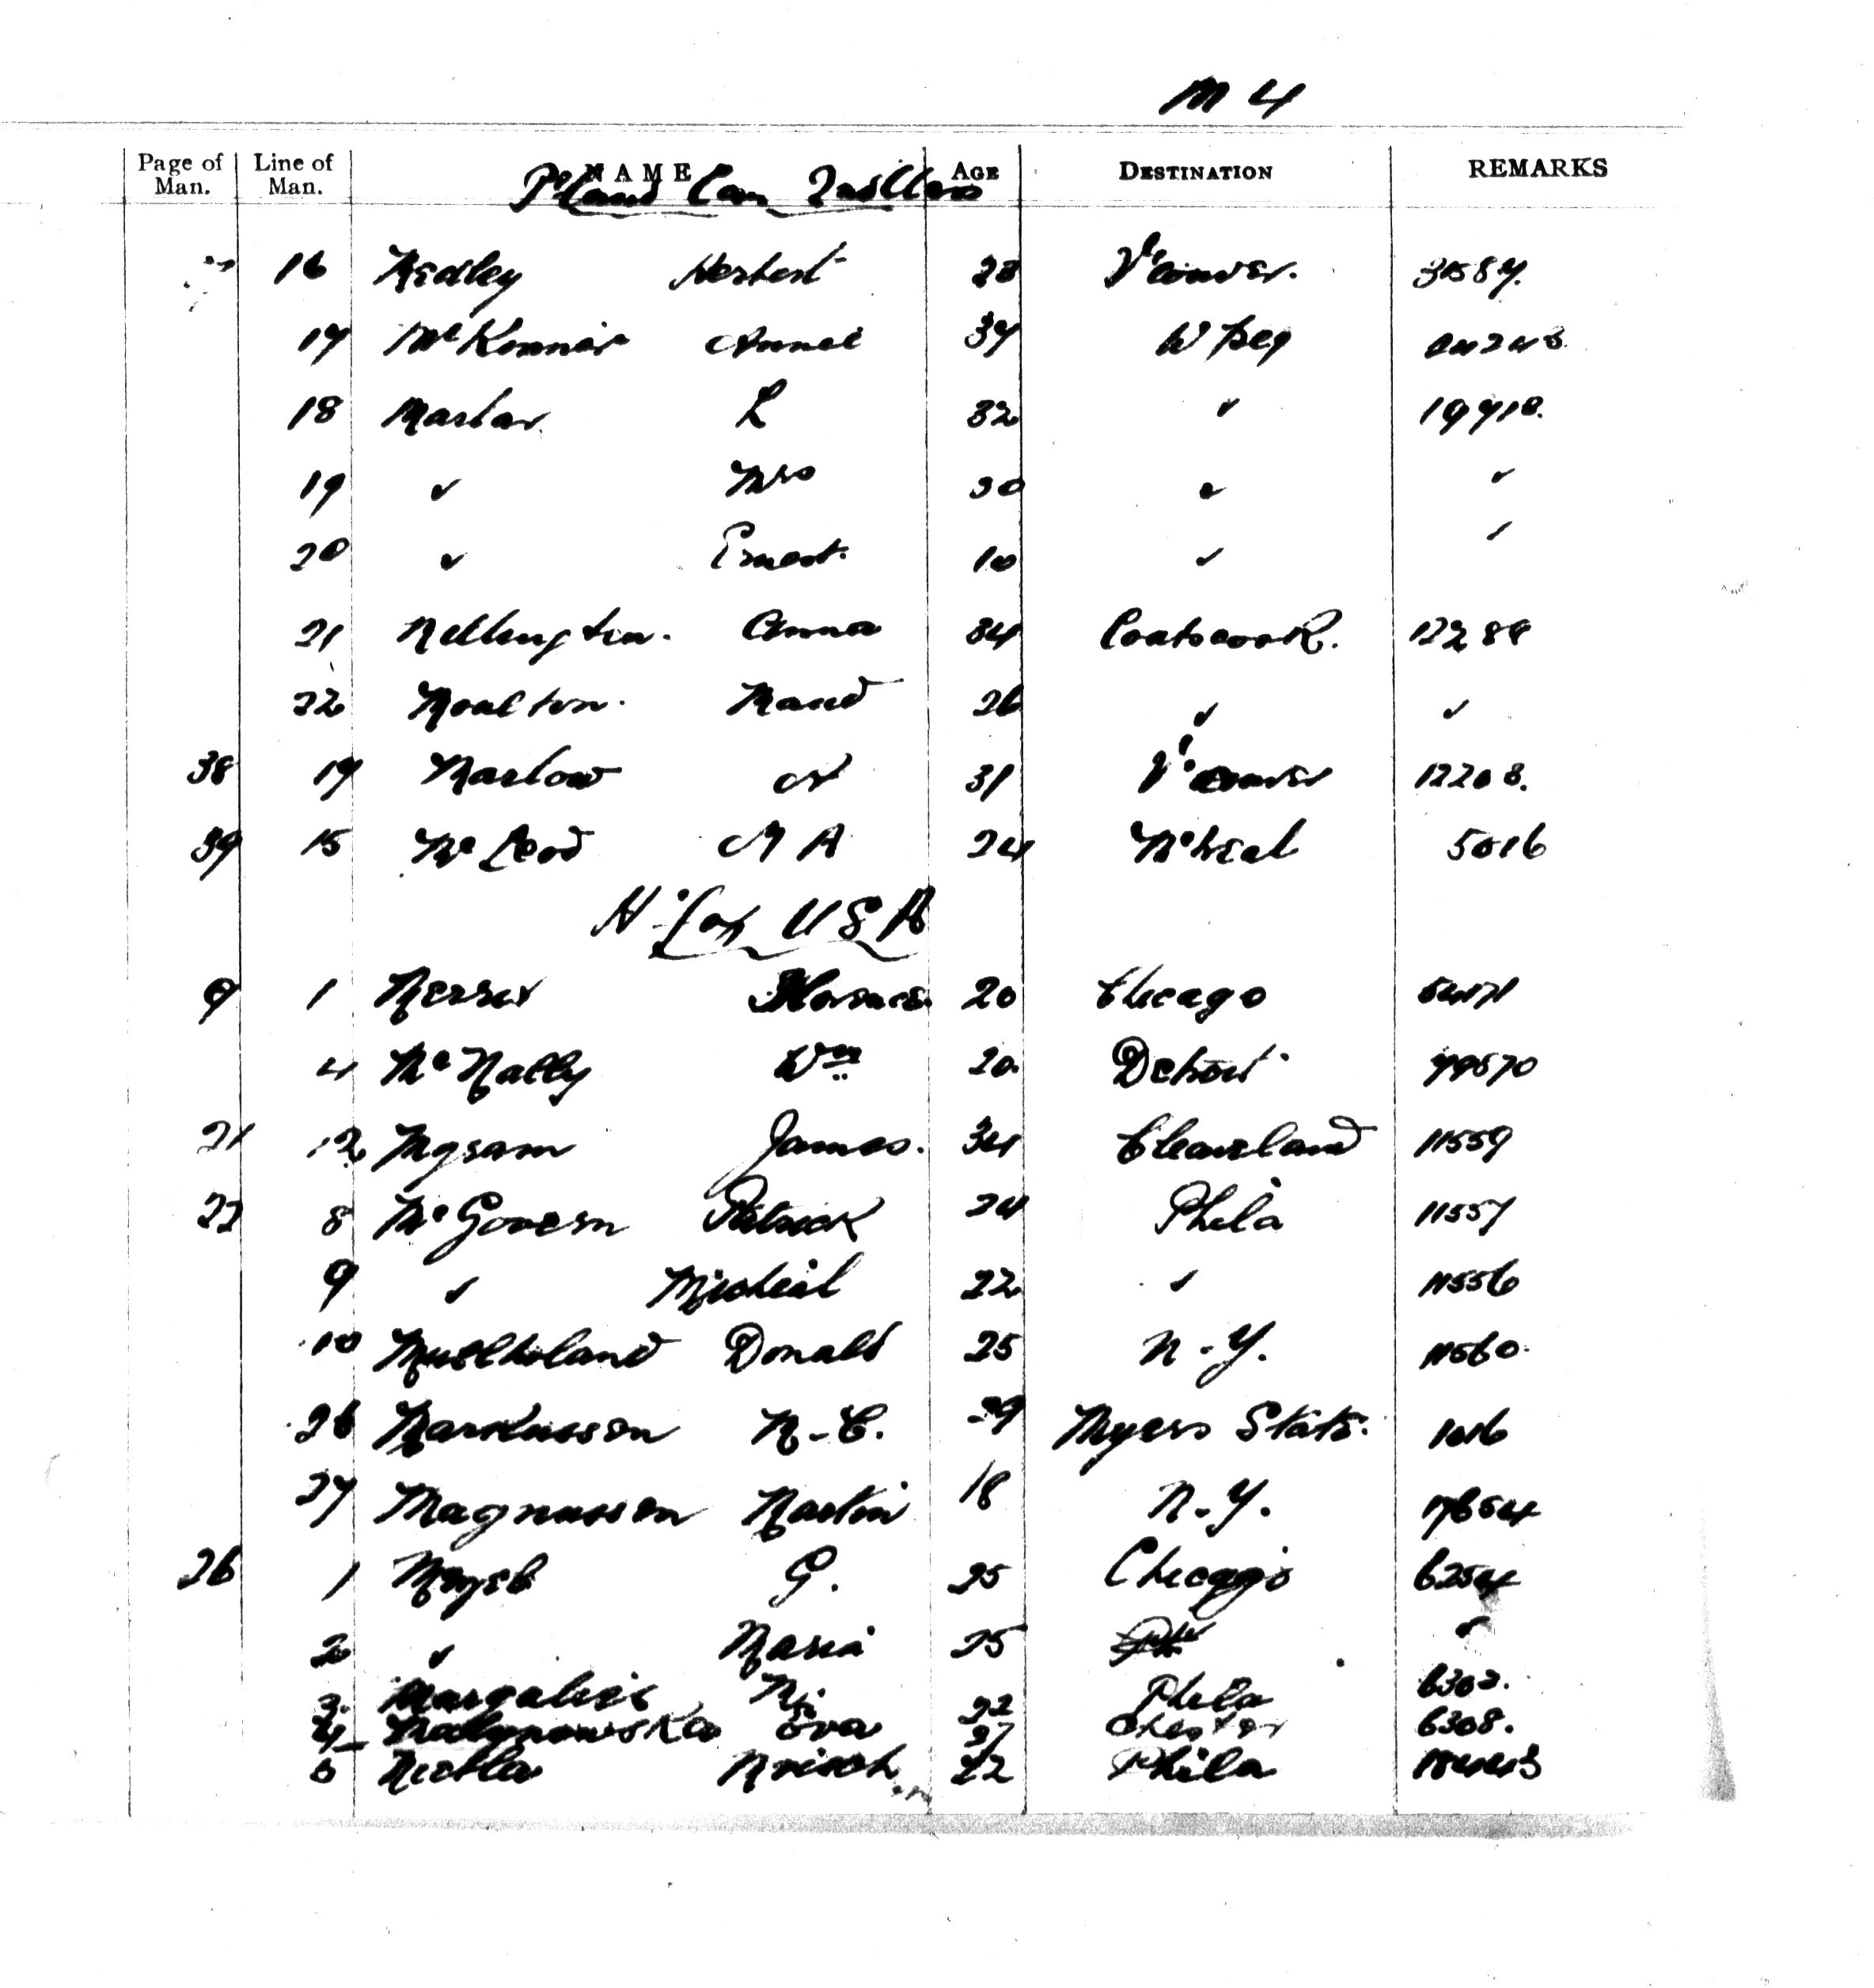 M 4
Page of Man. Line of Man. NAME AGE DESTINATION REMARKS
P'land Can
16 Medley Herbert 28 V'couver. 31587.
17 McKinnon Annie 37 W'peg
18 Marlar L 32 " 19718.
19 " Mrs 30 " "
20 " Ernest. 10 " "
21 Mellington. Anna 34 Coatscook. 12288
22 Moulton. Maud 26 " "
38 17 Marlow A 31 V'couver 12208.
39 15 McLeod M A 24 M'treal 5016
H'fax USA
9 1 Mercer Florence. 20 Chicago 5471
4 McNally Wm 20. Detroit 79570
21 12 Mgram James. 34 Cleaveland 11559
22 8 McGovern Patrick 24 Phila 11557
9 " Micheal 22 " 11556
10 Mulholand Donald 25 N-Y. 11560.
26 Markussen M-C. 29 Myers State. 1016
27 Magnussen Martin 18 N-Y. 17654
26 1 G. 25 Chicago 6254
2 " Maria 25 "
3. Margalies M. 22 Phila 6302.
4 Malynowska Eva 37 Chester 6308.
5 22 Phila